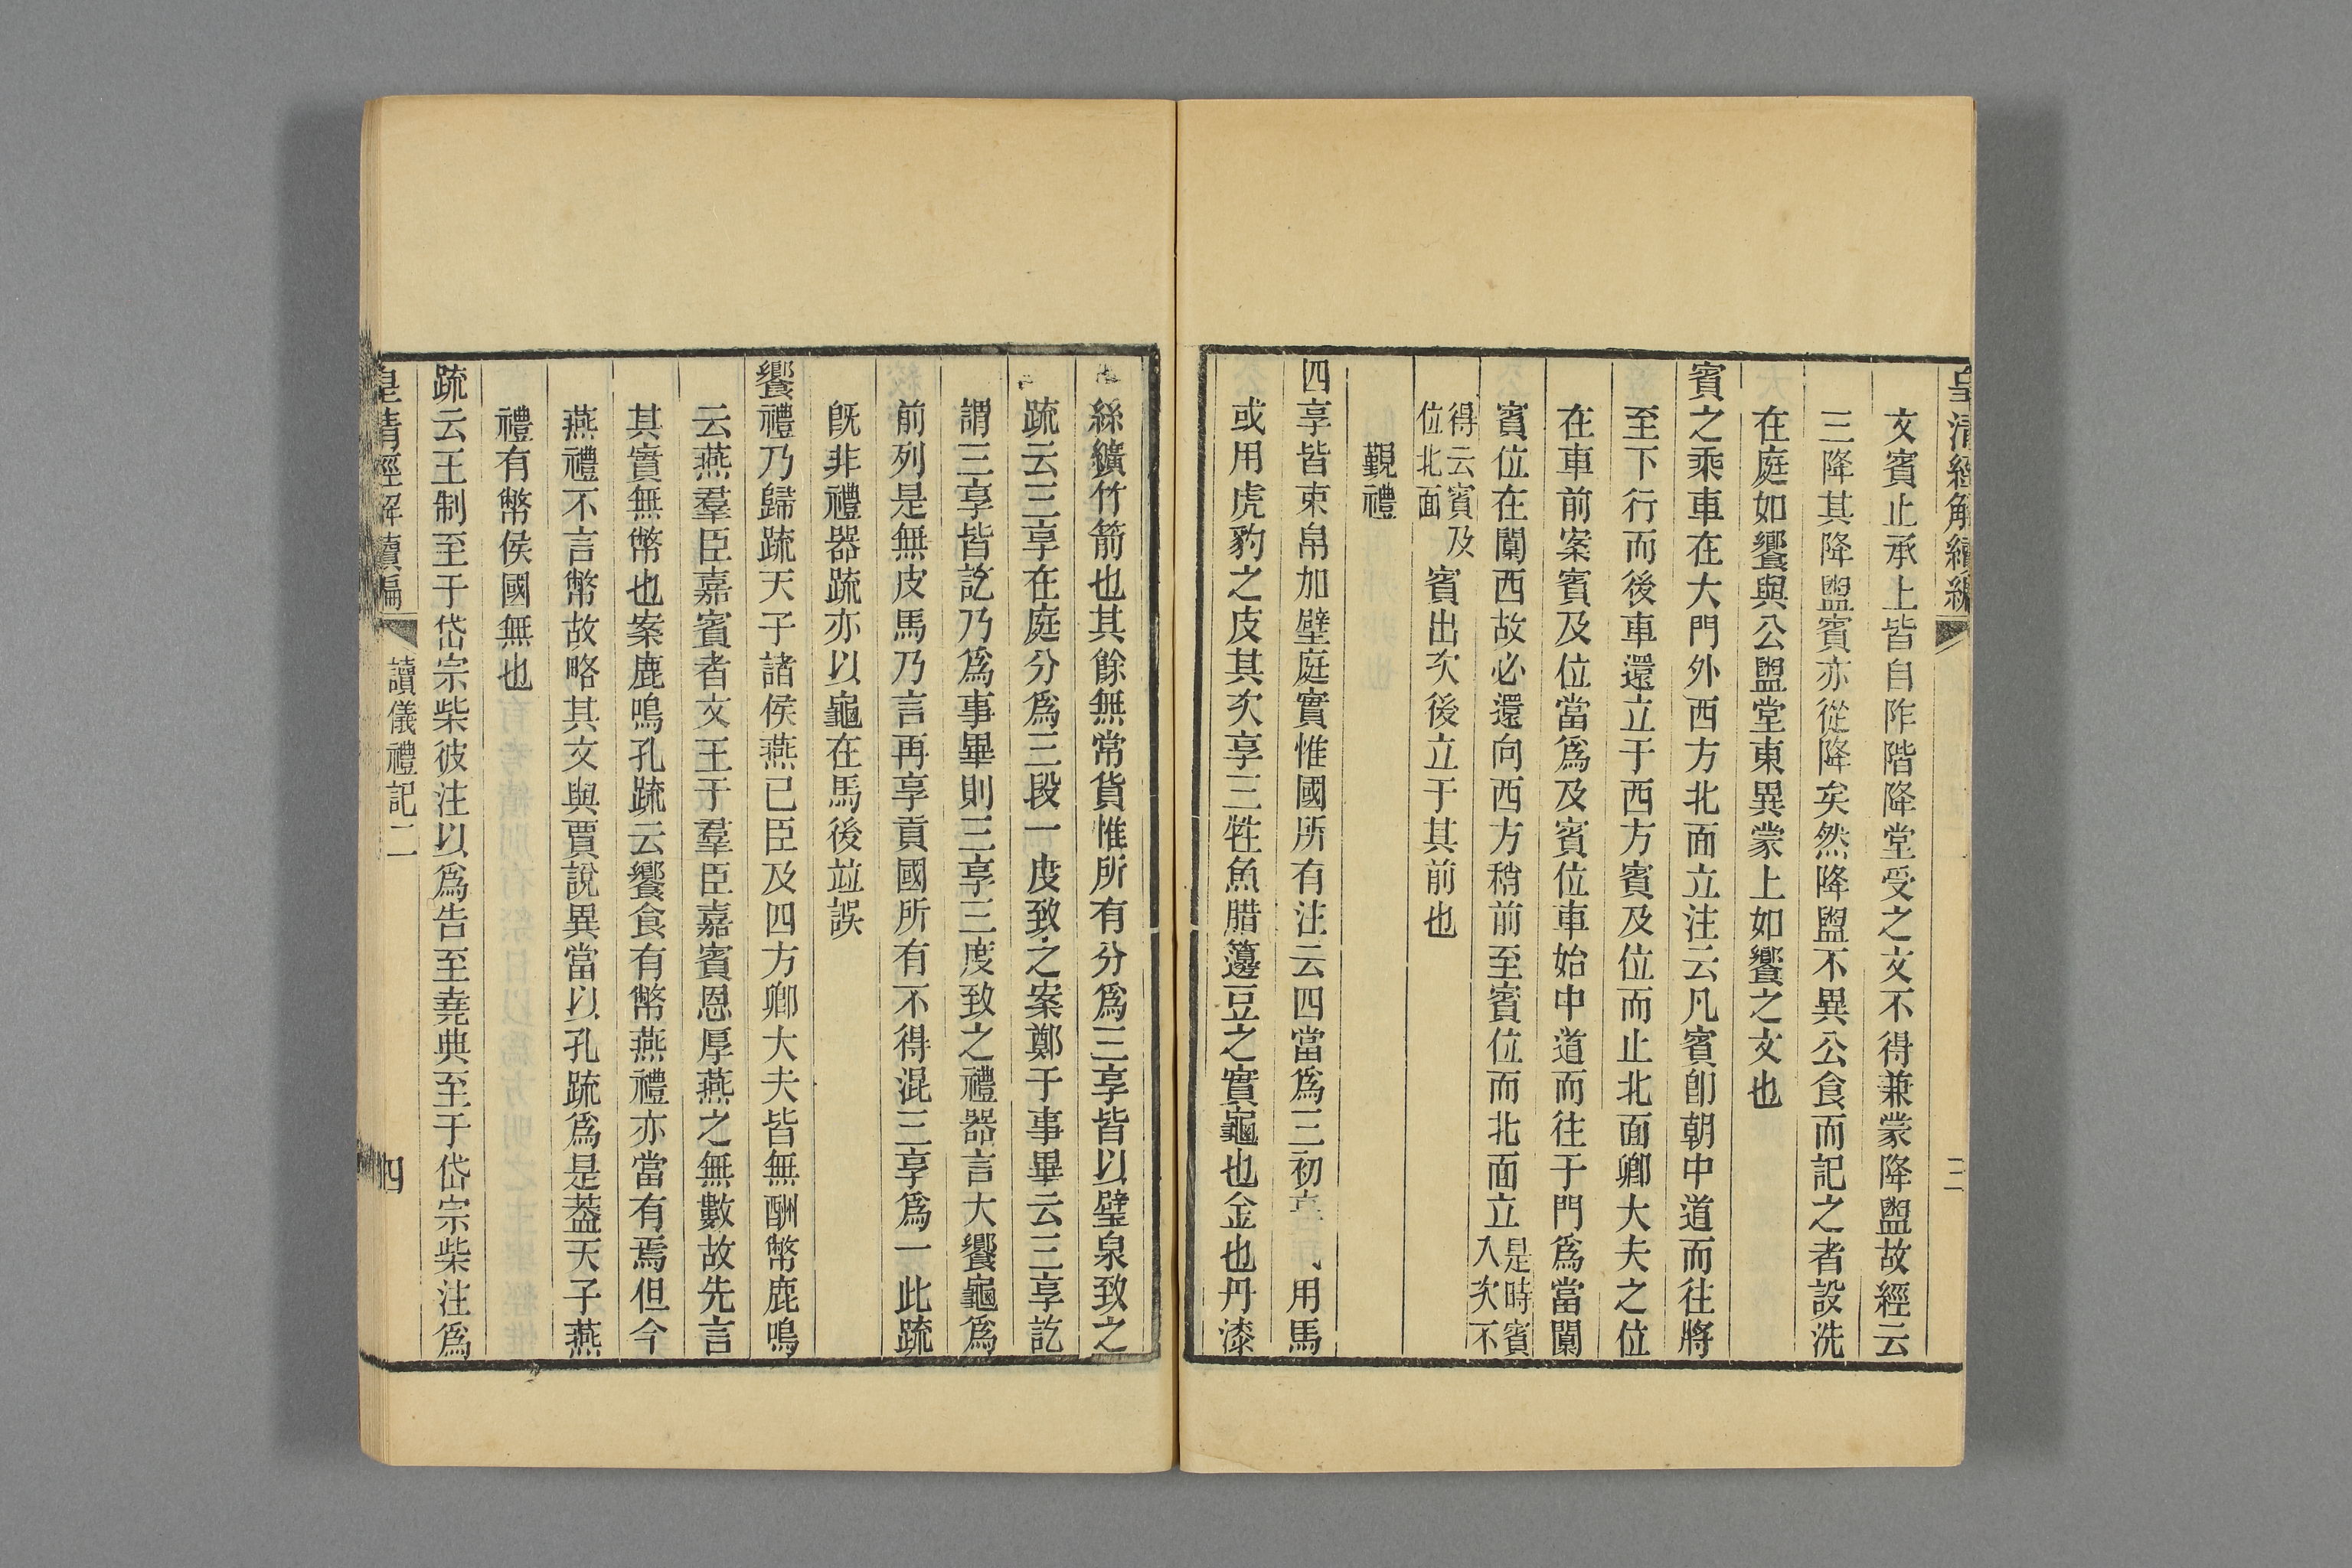 皇清經解續編
三
文賓止承上皆自阼階降堂受之文不得兼蒙降盥故經云
三降其降盥賓亦從降矣然降盥不異公食而記之者設洗
在庭如饗與公盥堂東異蒙上如饗之文也
賓之乘車在大門外西方北面立注云凡賓卽朝中道而往將
至下行而後車還立于西方賓及位而止北面卿大夫之位
在車前案賓及位當爲及賓位車始中道而往于門爲當闑
賓位在闑西故必還向西方稍前至賓位而北面立是時賓入次不
得云賓及位北面賓出次後立于其前也
覲禮
四享皆束帛加璧庭實惟國所有注云四當爲三初享 用馬
或用虎豹之皮其次享三牲魚腊籩豆之實龜也金也丹漆
絲纊竹箭也其餘無常貨惟所有分爲三享皆以璧帛致之
疏云三享在庭分爲三段一度致之案鄭于事畢云三享訖
謂三享皆訖乃爲事畢則三享三度致之禮器言大饗龜爲
前列是無皮馬乃言再享貢國所有不得混三享爲一此疏
旣非禮器疏亦以龜在馬後竝誤
饗禮乃歸疏天子諸侯燕已臣及四方卿大夫皆無酬幣鹿鳴
云燕羣臣嘉賓者文王于羣臣嘉賓恩厚燕之無數故先言
其實無幣也案鹿鳴孔疏云饗食有幣燕禮亦當有焉但今
燕禮不言幣故略其文與賈說異當以孔疏爲是葢天子燕
禮有幣侯國無也
疏云王制至于岱宗柴彼注以爲告至堯典至于岱宗柴注爲
皇清經解續編
讀儀禮記二
四